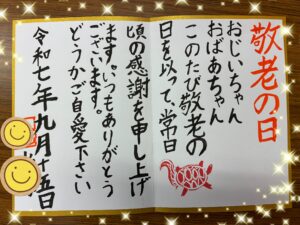 敬老の日
おじいちゃん
おばあちゃん
このたび敬老の
日を以って、常日
頃の感謝を申し上げ
ます。いつもありがとう
ございます。
どうかご自愛下さい
令和七年九月十五日